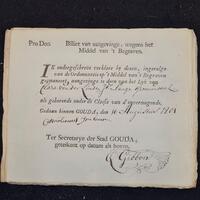 Pro Deo. Billet van aangevinge, wegens het
Middel van 't Begraven.
IK ondergeschreve verklare by desen, ingevolge
van de Ordonnantie op 't Middel van 't Begraven
geëmaneert, aangevinge te doen van het Lyk van
als gehorende onder de Classis van d'onvermogende.
Gedaan binnen GOUDA, den 10 Augustus 1801
Ter Secretarye der Stad GOUDA,
getekent op datum als boven,